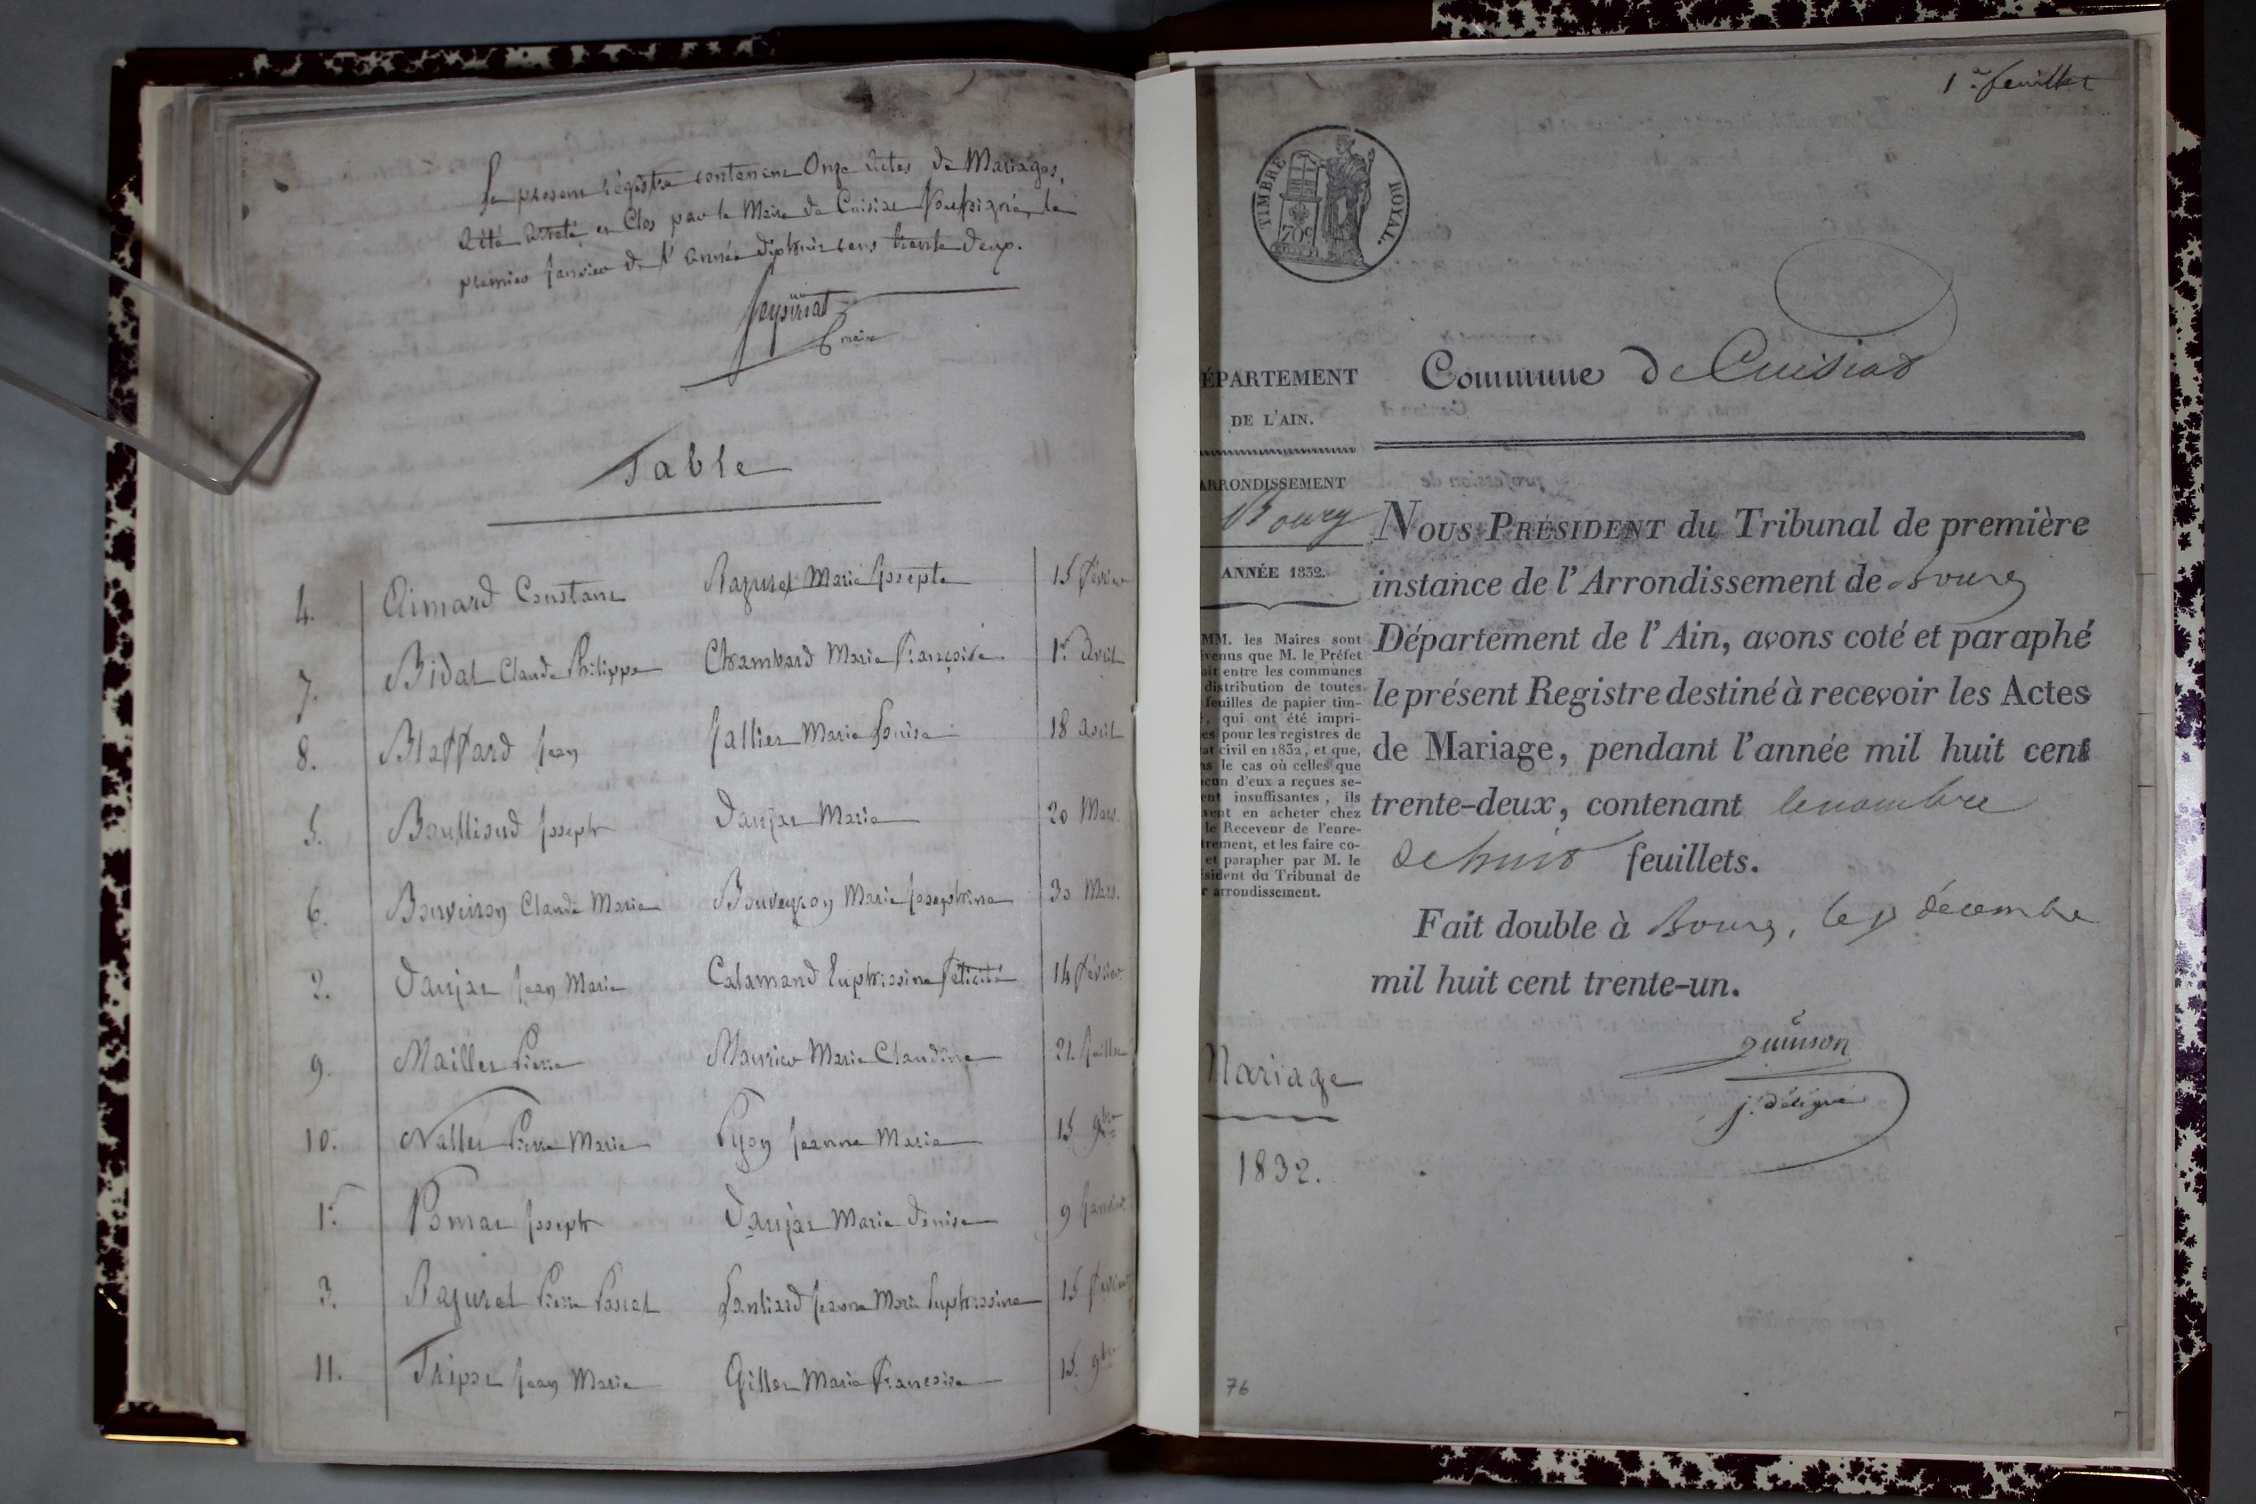 Le present régistre contenant Onze Actes de Mariages,
a été arreté et Clos par le Maire de Cuisiat soussigné, le
premier Janvier de l'année dixhuit cens trente deux.
maire
Table
4. Aimard Constant Razurel Marie Josepte 15 février
7. Bidal Claude Philippe Chambard Marie Françoise 1er avril
8. Blaffard Jean Jallier Marie Louise 18 avril
5. Boullioud Joseph Daujat Marie 20 Mars.
6. Bouveiron Claude Marie Bouveyron Marie Josephine 30 Mars.
2. Daujat Jean Marie Calamand Euphrosine Félicité 14 février
9. Maillet Pierre Maurier Marie Claudine 21 Juillet
10. Nallet Pierre Marie Pyon Jeanne Marie 15 9bre
1er Pomat Joseph Daujat Marie Denise 9 Janvier
3. Razurel Pierre Pascal Jeanne Marie Euphrosine 15 février
11. Jean Marie Gillet Marie Françoise 15 9bre
1er feuillet
TIMBRE ROYAL.
70c
Commune de Cuisiat
ÉPARTEMENT
DE L'AIN.
ARRONDISSEMENT
Bourg
ANNÉE 1832.
MM. les Maires sont
venus que M. le Préfet
ait entre les communes
distribution de toutes
feuilles de papier tim-
, qui ont été impri-
es pour les registres de
at civil en 1832, et que,
ns le cas où celles que
acun d'eux a reçues se-
ent insuffisantes, ils
vent en acheter chez
le Receveur de l'enre-
trement, et les faire co-
et parapher par M. le
sident du Tribunal de
r arrondissement.
Mariage
1832.
NOUS PRÉSIDENT du Tribunal de première
instance de l'Arrondissement de Bourg
Département de l'Ain, avons coté et paraphé
le présent Registre destiné à recevoir les Actes
de Mariage, pendant l'année mil huit cent
trente-deux, contenant le nombre
de huit feuillets.
Fait double à Bourg, le décembre
mil huit cent trente-un.
quinson
j. délégué
76